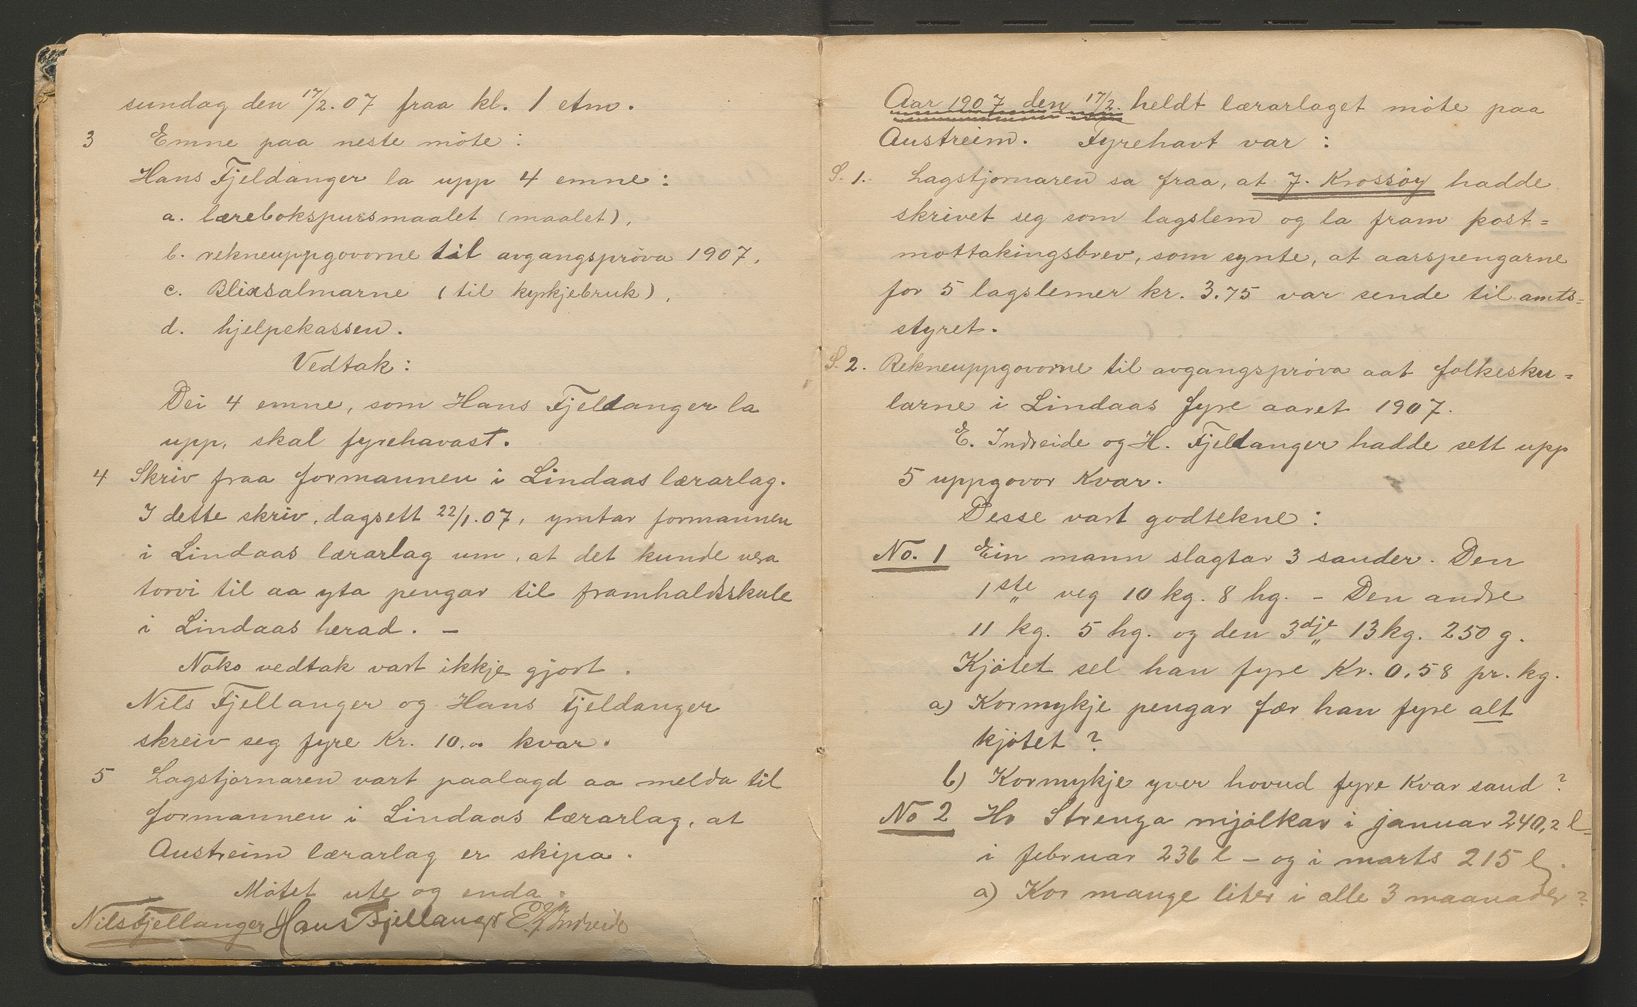 sundag den 17/2. 07 fraa kl. 1 etm.
3 Emne paa neste möte:
Hans Fjeldanger la upp 4 emne:
a. lærebokspursmaalet (maalet).
b. rekneuppgovorne til avgangspröva 1907.
c. Blixsalmarne (til kyrkjebruk).
d. hjelpekassen.
Vedtak:
Dei 4 emne, som Hans Fjeldanger la
upp, skal fyrehavast.
4 Skriv fraa formannen i Lindaas lærarlag.
I dette skriv, dagsett 22/1. 07, ymtar formannen
i Lindaas lærarlag um, at det kunde vera
torvi til aa yta pengar til framhaldsskule
i Lindaas herad. –
Noko vedtak vart ikkje gjort.
Nils Fjellanger og Hans Fjeldanger
skreiv seg fyre Kr. 10.00 kvar.
5 Lagstjornaren vart paalagd aa melda til
formannen i Lindaas lærarlag, at
Austreim lærarlag er skipa.
Mötet ute og enda.
Nils Fjellanger Hans Fjellanger E. Indreide
Aar 1907 den 17/2. heldt lærarlaget möte paa
Austreim. Fyrehavt var:
S. 1. Lagstjornaren sa fraa, at J. Krossöy hadde
skrivet seg som lagslem og la fram post=
mottakingsbrev, som synte, at aarspengarne
for 5 lagslemer kr. 3.75 var sende til amts=
styret.
S. 2. Rekneuppgovorne til avgangspröva aat folkesku=
larne i Lindaas fyre aaret 1907.
E. Indreide og H. Fjellanger hadde sett upp
5 uppgovor kvar.
Desse vart godtekne:
No. 1 Ein mann slagtar 3 sauder. Den
1ste veg 10 kg. 8 hg. – Den andre
11 kg. 5 hg. og den 3dje 13 kg. 250 g.
Kjötet sel han fyre Kr. 0.58 pr. kg.
a) Kormykje pengar fær han fyre alt
kjötet?
b) Kormykje yver hovud fyre kvar saud?
No 2 Ho Strenga mjölkar i januar 240,2 l–
i februar 236 l – og i marts 215 l.
a) Kor mange liter i alle 3 maanader?